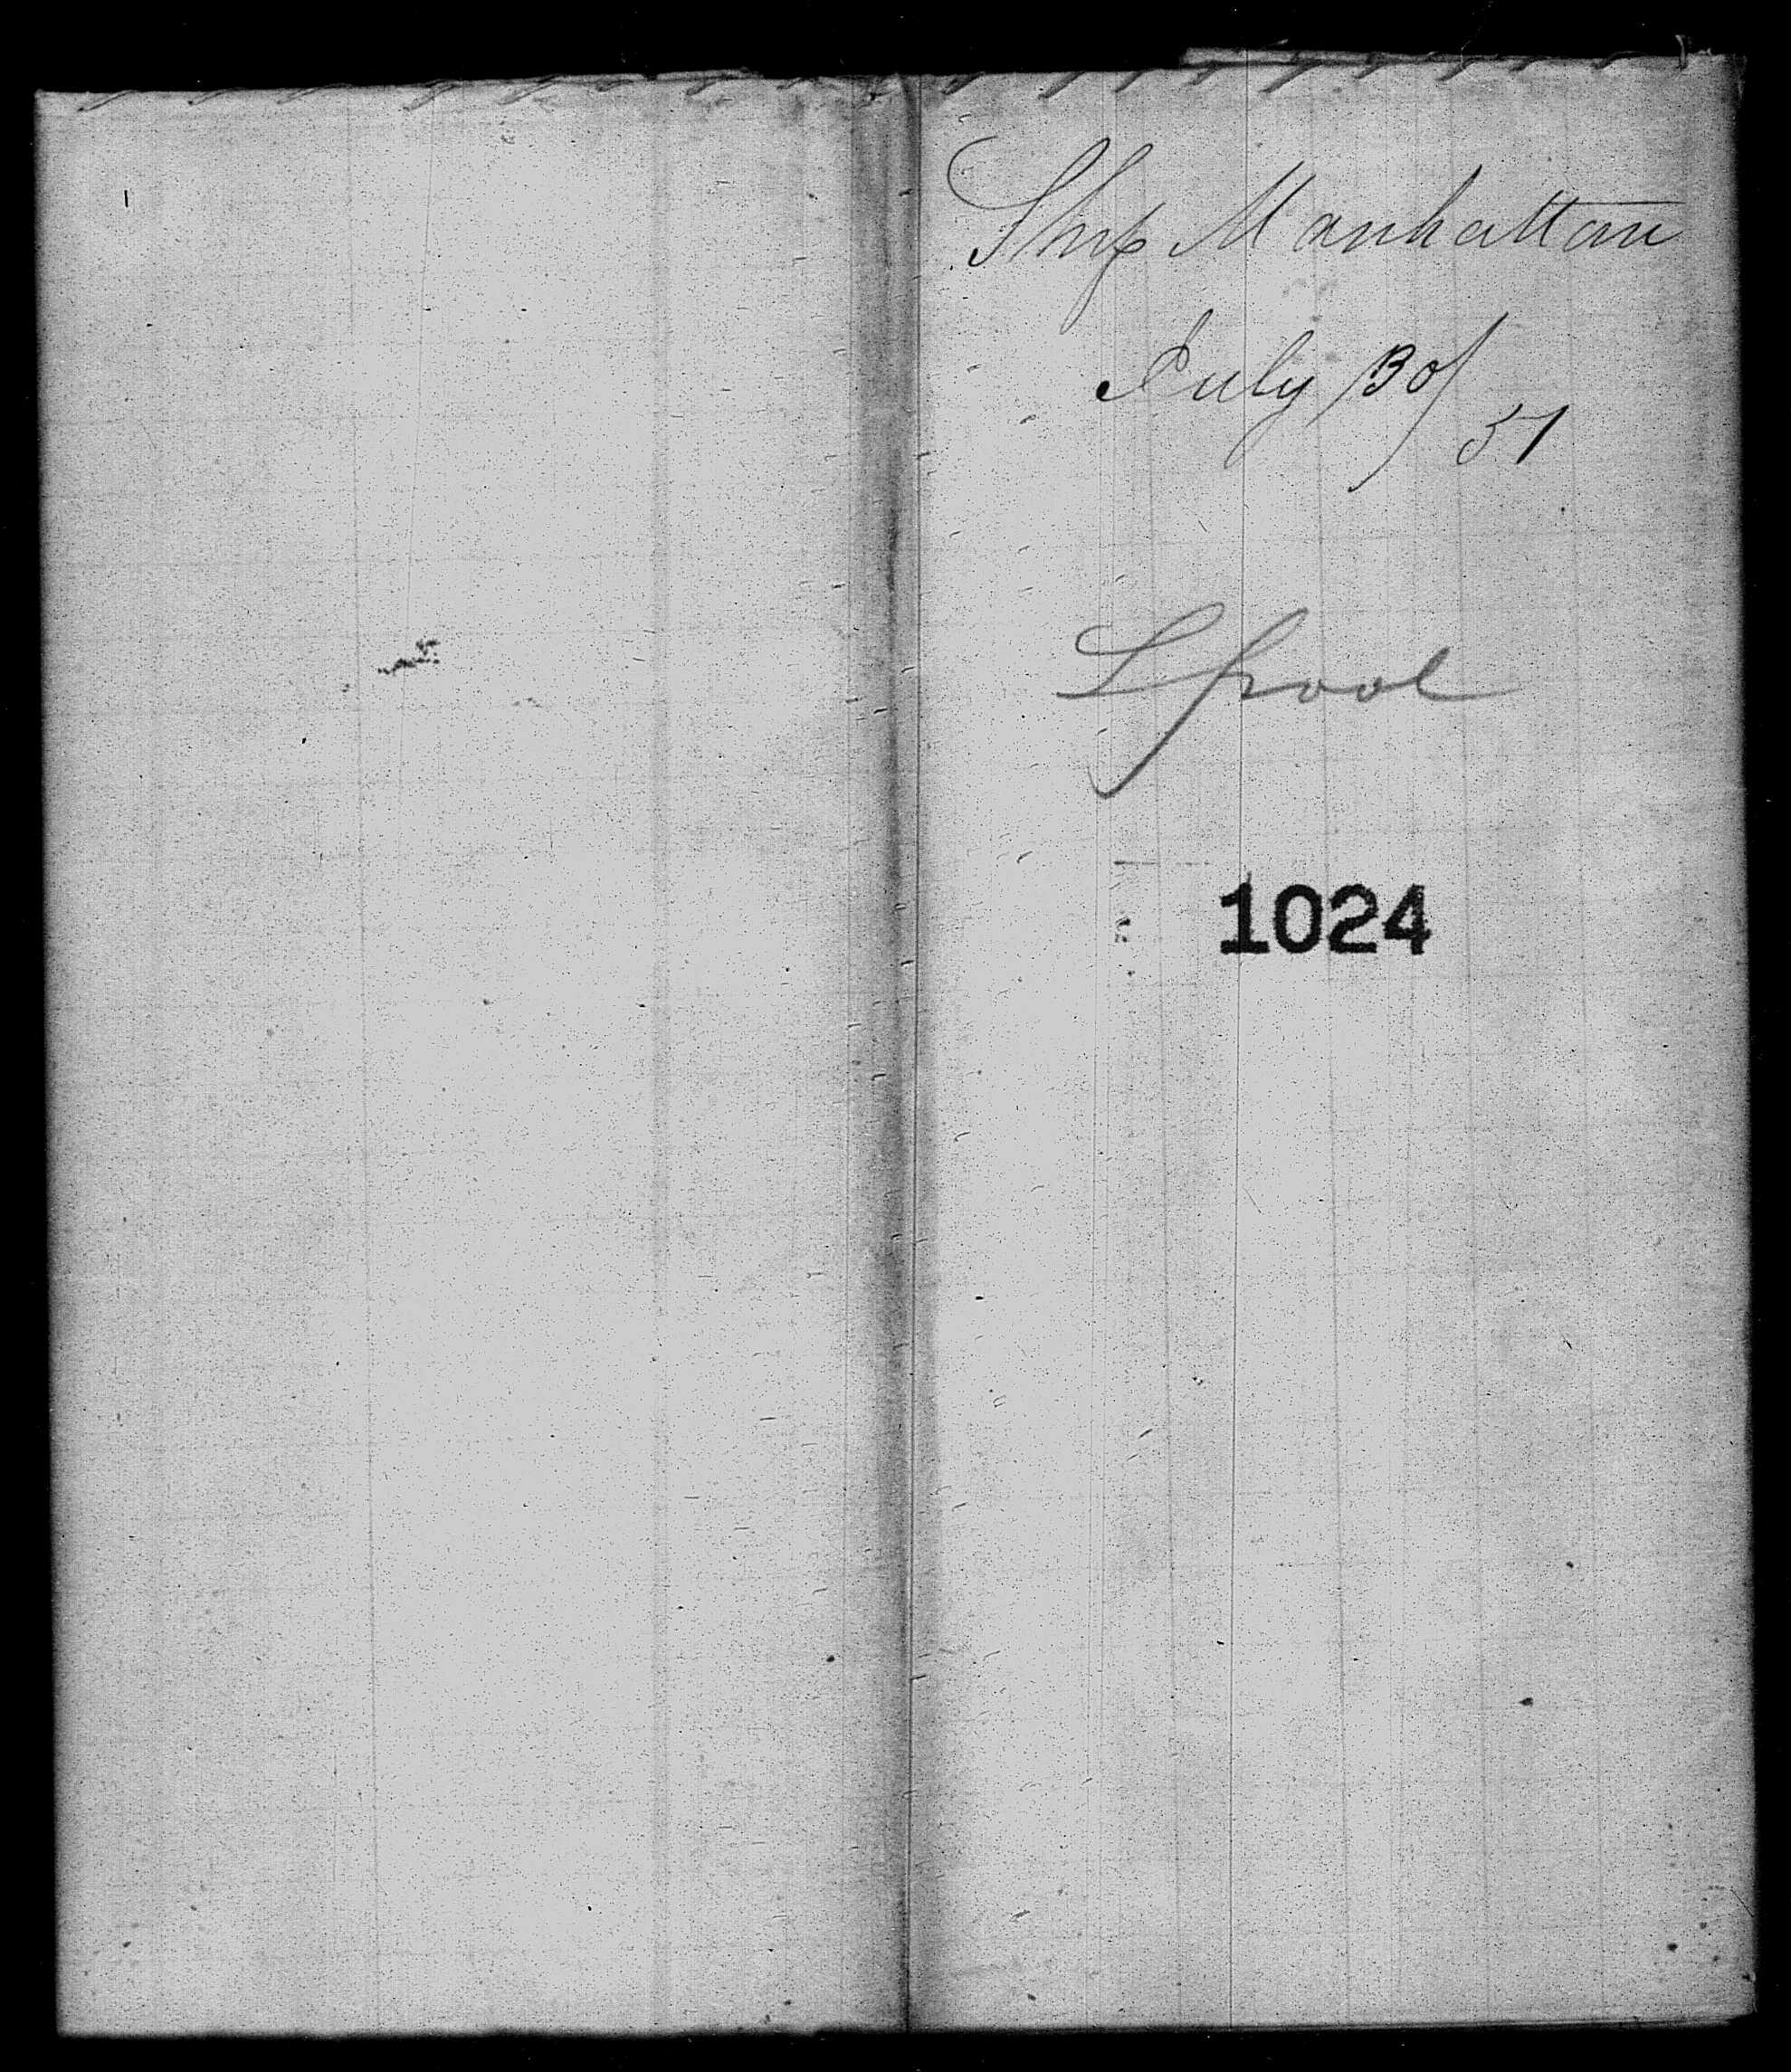 Ship Manhattan
July 30/
51
Lpool
1024